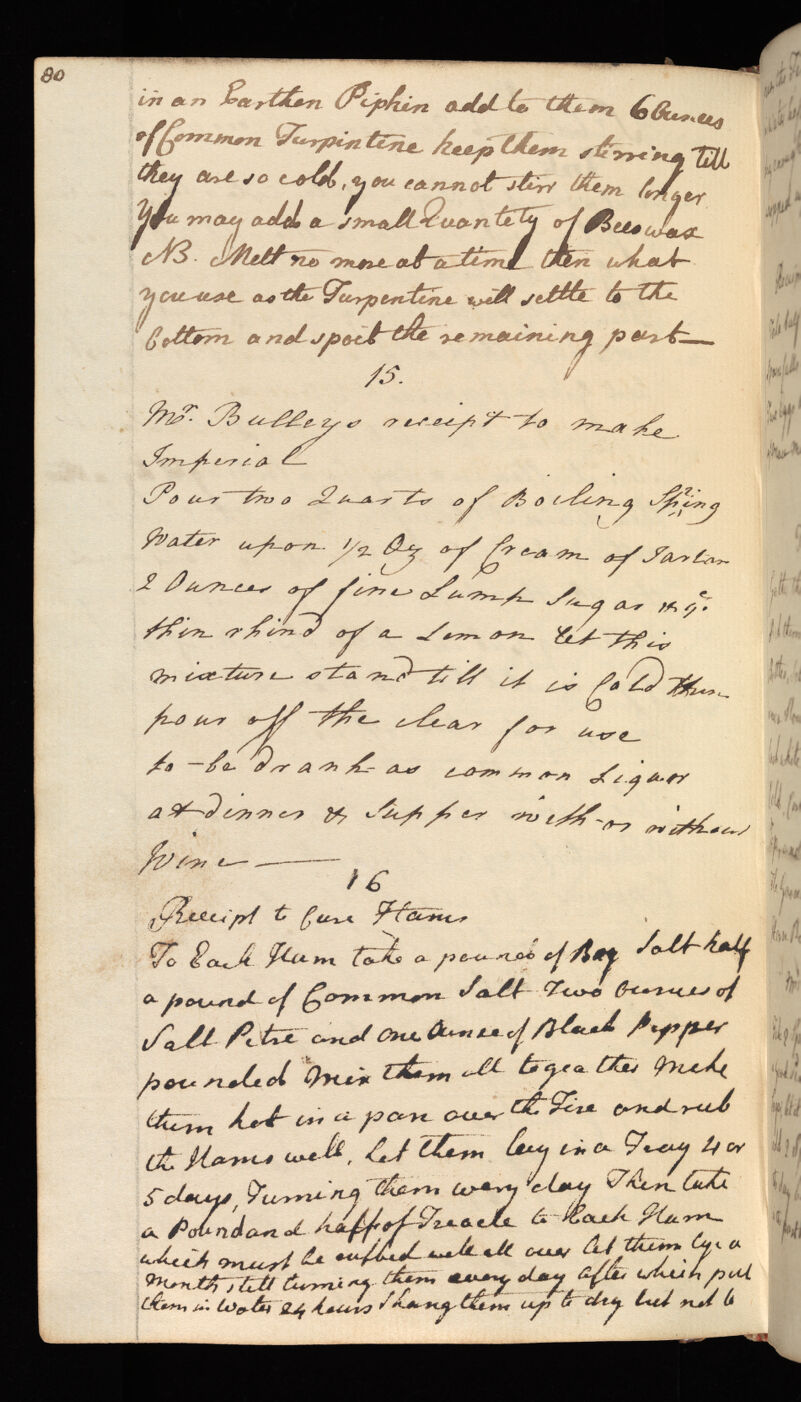 80
in an Earthen Pipkin add to them 6 Ounces
of Common Turpintine keep them stirring till
they are so cold, you cannot stirr them longer
You may add a small Quantety of Bees wax
NB. Melt no more at a time then what
you use as the Turpentine will settle to the
bottom and spoil the remaining part—
15.
Mr. Bulleys receipt to make
Imperial
Pour two Quarts of Boiling Spring
Water upon 1/2 Oz of Cream of Tartar
2 Ounces of fine Lump Sugar & ye.
thin rhind of a Lemon let this
mixture stand till it is Cold then
pour off the clear for use
to-be drank as common Liquor
at dinner & Supper with-or without
Wine —
16
Receipt to Cure Hams
To Each Ham take a pound of Bay Salt half
a pound of Common Salt Two ounces of
Salt Petre and one Ounce of Black Pepper
pounded Mix them all togeather Make
them hot in a pan over the Fire and rub
the Hams well, Let them lay in a Tray 4 or
5 days, Turning them every day Then take
a Pound and half of Treacle to Each Ham
which must be rubbed well all over let them lye a
Month still turning them every day after which put
them in Water 24 hours & hang them up to dry but not to